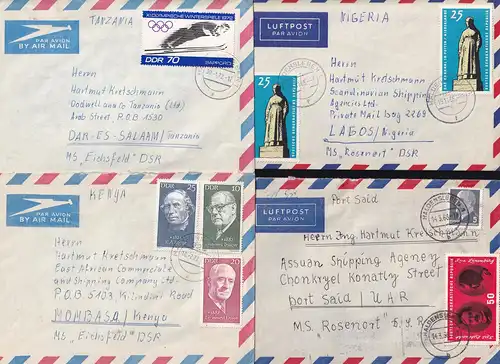 TANZANIA
MIT LUFTPOST
PAR AVION
BY AIR MAIL
XI. OLYMPISCHE WINTERSPIELE 1972
DDR 70
SAPPORO
Herrn
Hartmut Kretschmann
Dodwell and Co Tanzania
Arab Street, P.O.B. 1530
DAR-ES-SALAAM/Tanzania
MS "Eichsfeld" DSR
NIGERIA
LUFTPOST
PAR AVION
25
25
Herrn
Hartmut Kretschmann
Scandinavian Shipping
Agencies Ltd.
Private Mail bag 2268
LAGOS/Nigeria
MS "Rosenort" DSR
KENYA
MIT LUFTPOST
PAR AVION
BY AIR MAIL
DDR
25
DDR
10
DDR
20
Herrn
Hartmut Kretschmann
East African Commerciale
and Shipping Company Ltd.
P.O.B. 5403 Kilindini Road
MOMBASA/Kenya
MS "Eichsfeld" DSR
Port Said
LUFTPOST
PAR AVION
5
50
Herrn Ing. Hartmut Kretschmann
Assuan Shipping Agency
Street
Port Said / UAR
M.S. "Rosenort" D.S.R.